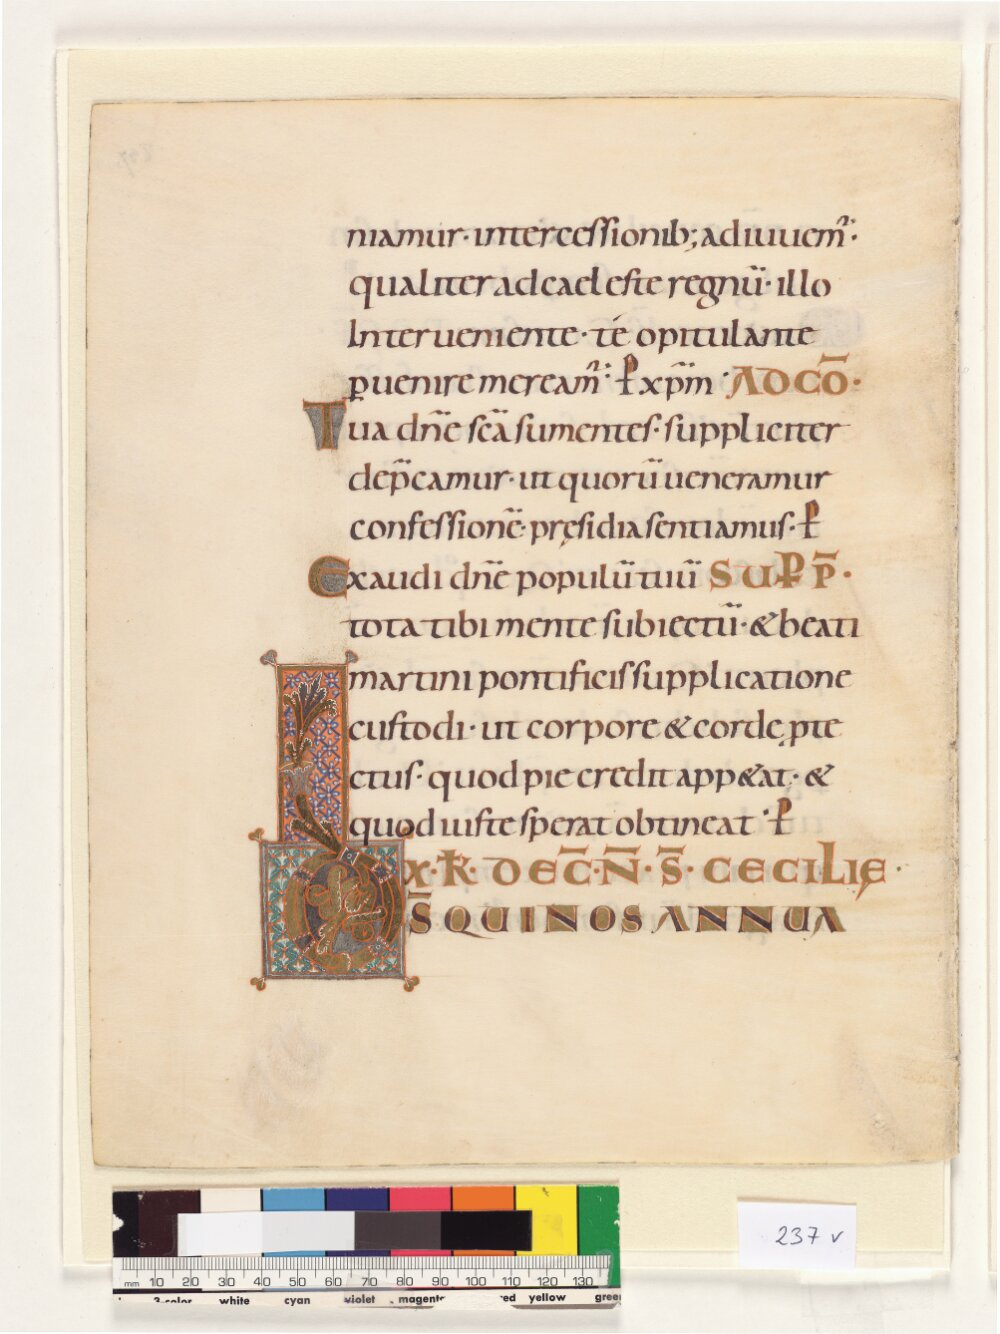 niamur· intercessionib; adiuuem̄r:
qualiter ad caeleste regnū· illo
Interueniente· té opitulante
ꝑuenire meream̄r: ꝑ xp̄m· AD CŌ·
Tua dn̄e sc̄a sumentes· suppliciter
dep̄camur· ut quorū ueneramur
confessionē· pręsidia sentiamus· ꝑ
Exaudi dn̄e populū tuū SUꝐ P̄·
tota tibi mente subiectū· & beati
martini pontificis supplicatione
custodi· ut corpore & corde ꝓte
ctus· quod pie credit app&at· &
quod iuste sperat obtineat· ꝑ
X·K̄· DEC̄·N̄· S̄· CECILIĘ·
DS̄ QUI NOS ANNUA
237 v
mm 10 20 30 40 50 60 70 80 90 100 110 120 130
3-color white cyan violet magenta red yellow green